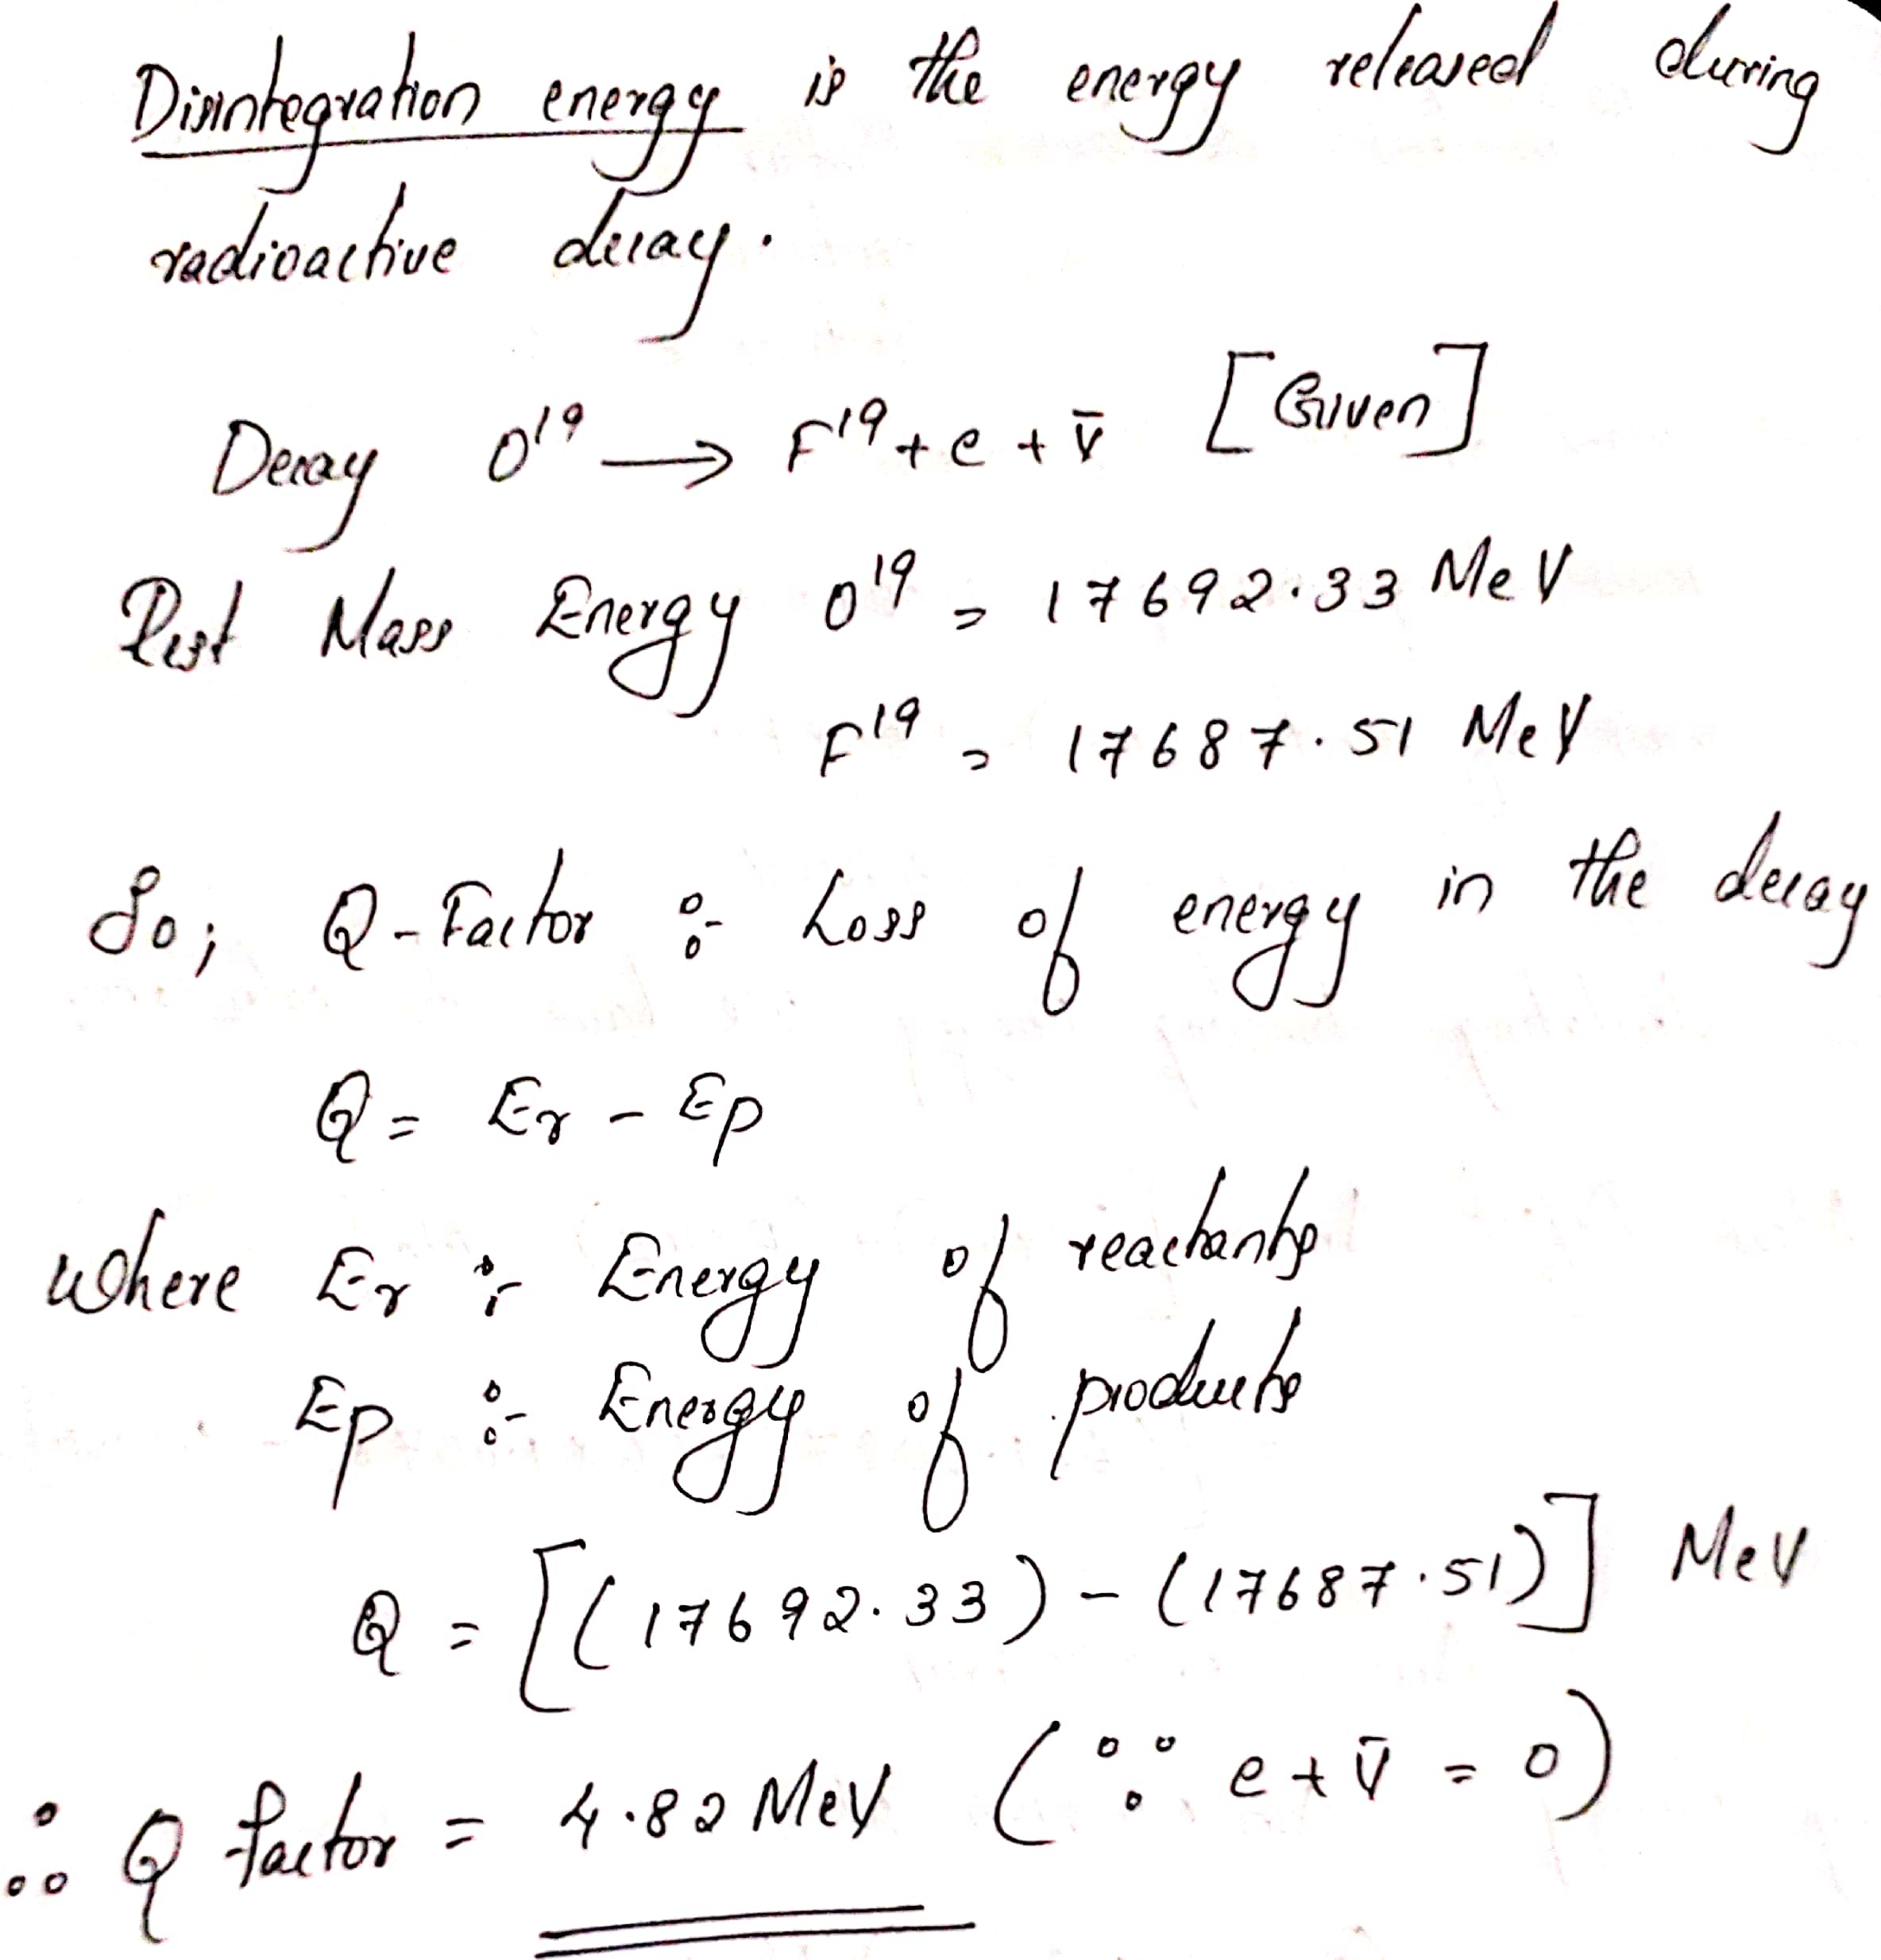 Disintegration energy is the energy released during
radioactive decay.
Decay O¹⁹ → F¹⁹ + e + ν̄ [Given]
Rest Mass Energy O¹⁹ = 17692.33 MeV
F¹⁹ = 17687.51 MeV
So; Q-Factor :- Loss of energy in the decay
Q = Er - Ep
Where Er :- Energy of reactants
Ep :- Energy of products
Q = [(17692.33) - (17687.51)] MeV
∴ Q factor = 4.82 MeV (∵ e + ν̄ = 0)